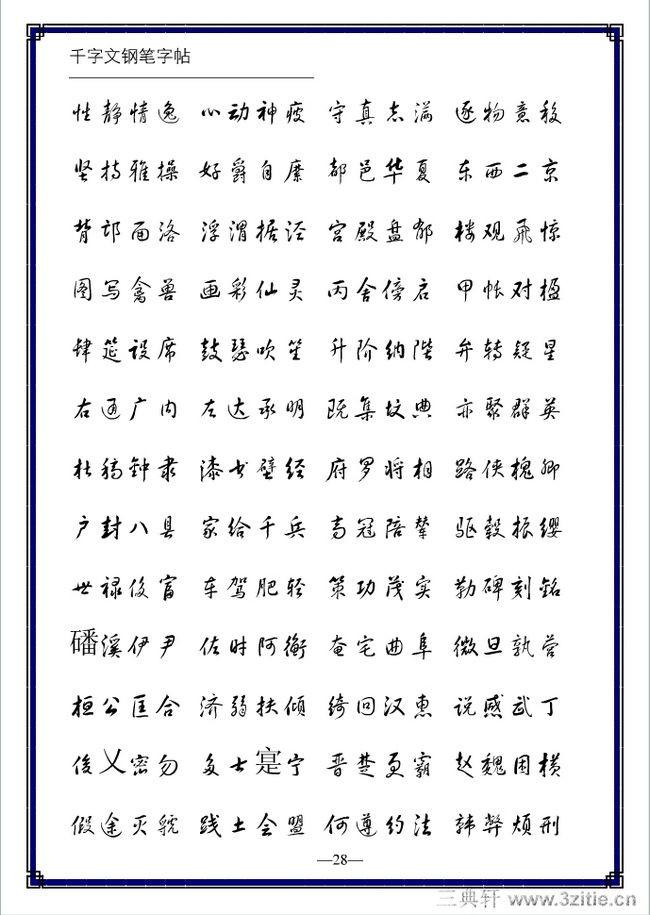 千字文钢笔字帖
性静情逸 心动神疲 守真志满 逐物意移
坚持雅操 好爵自縻 都邑华夏 东西二京
背邙面洛 浮渭据泾 宫殿盘郁 楼观飞惊
图写禽兽 画彩仙灵 丙舍傍启 甲帐对楹
肆筵设席 鼓瑟吹笙 升阶纳陛 弁转疑星
右通广内 左达承明 既集坟典 亦聚群英
杜稿钟隶 漆书壁经 府罗将相 路侠槐卿
户封八县 家给千兵 高冠陪辇 驱毂振缨
世禄侈富 车驾肥轻 策功茂实 勒碑刻铭
磻溪伊尹 佐时阿衡 奄宅曲阜 微旦孰营
桓公匡合 济弱扶倾 绮回汉惠 说感武丁
俊乂密勿 多士寔宁 晋楚更霸 赵魏困横
假途灭虢 践土会盟 何遵约法 韩弊烦刑
—28—
三典轩 www.3zitie.cn